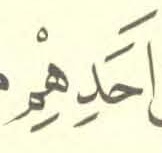 اَحَدِهِمْ